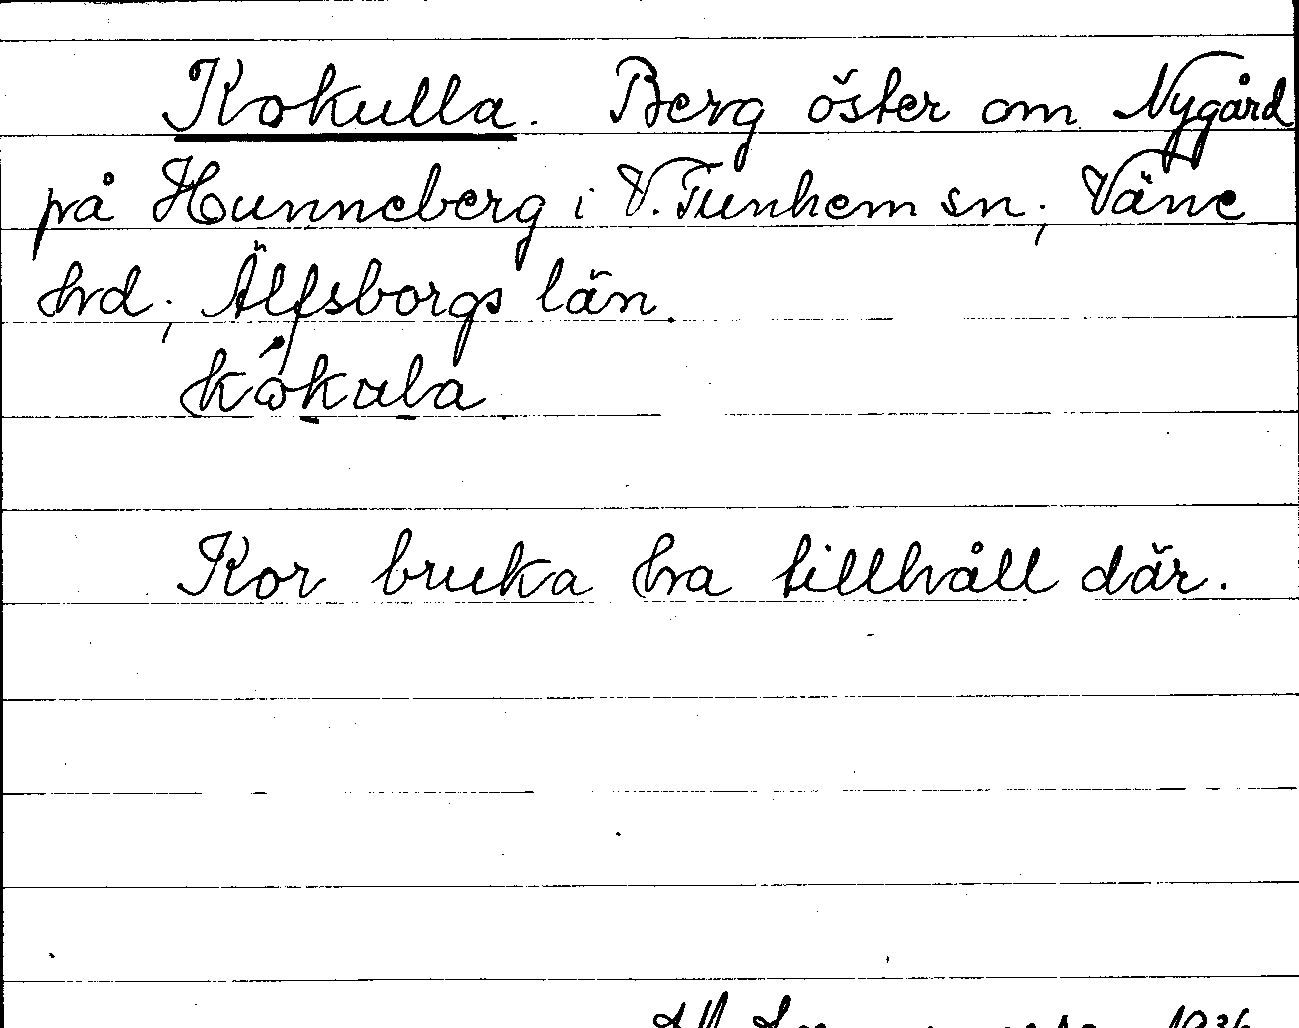 Kokulla. Berg öster om Nygård
på Hunneberg i V. Tunhem sn; Väne
hd; Älfsborgs län.
kókula
Kor bruka ha tillhåll där.
1936